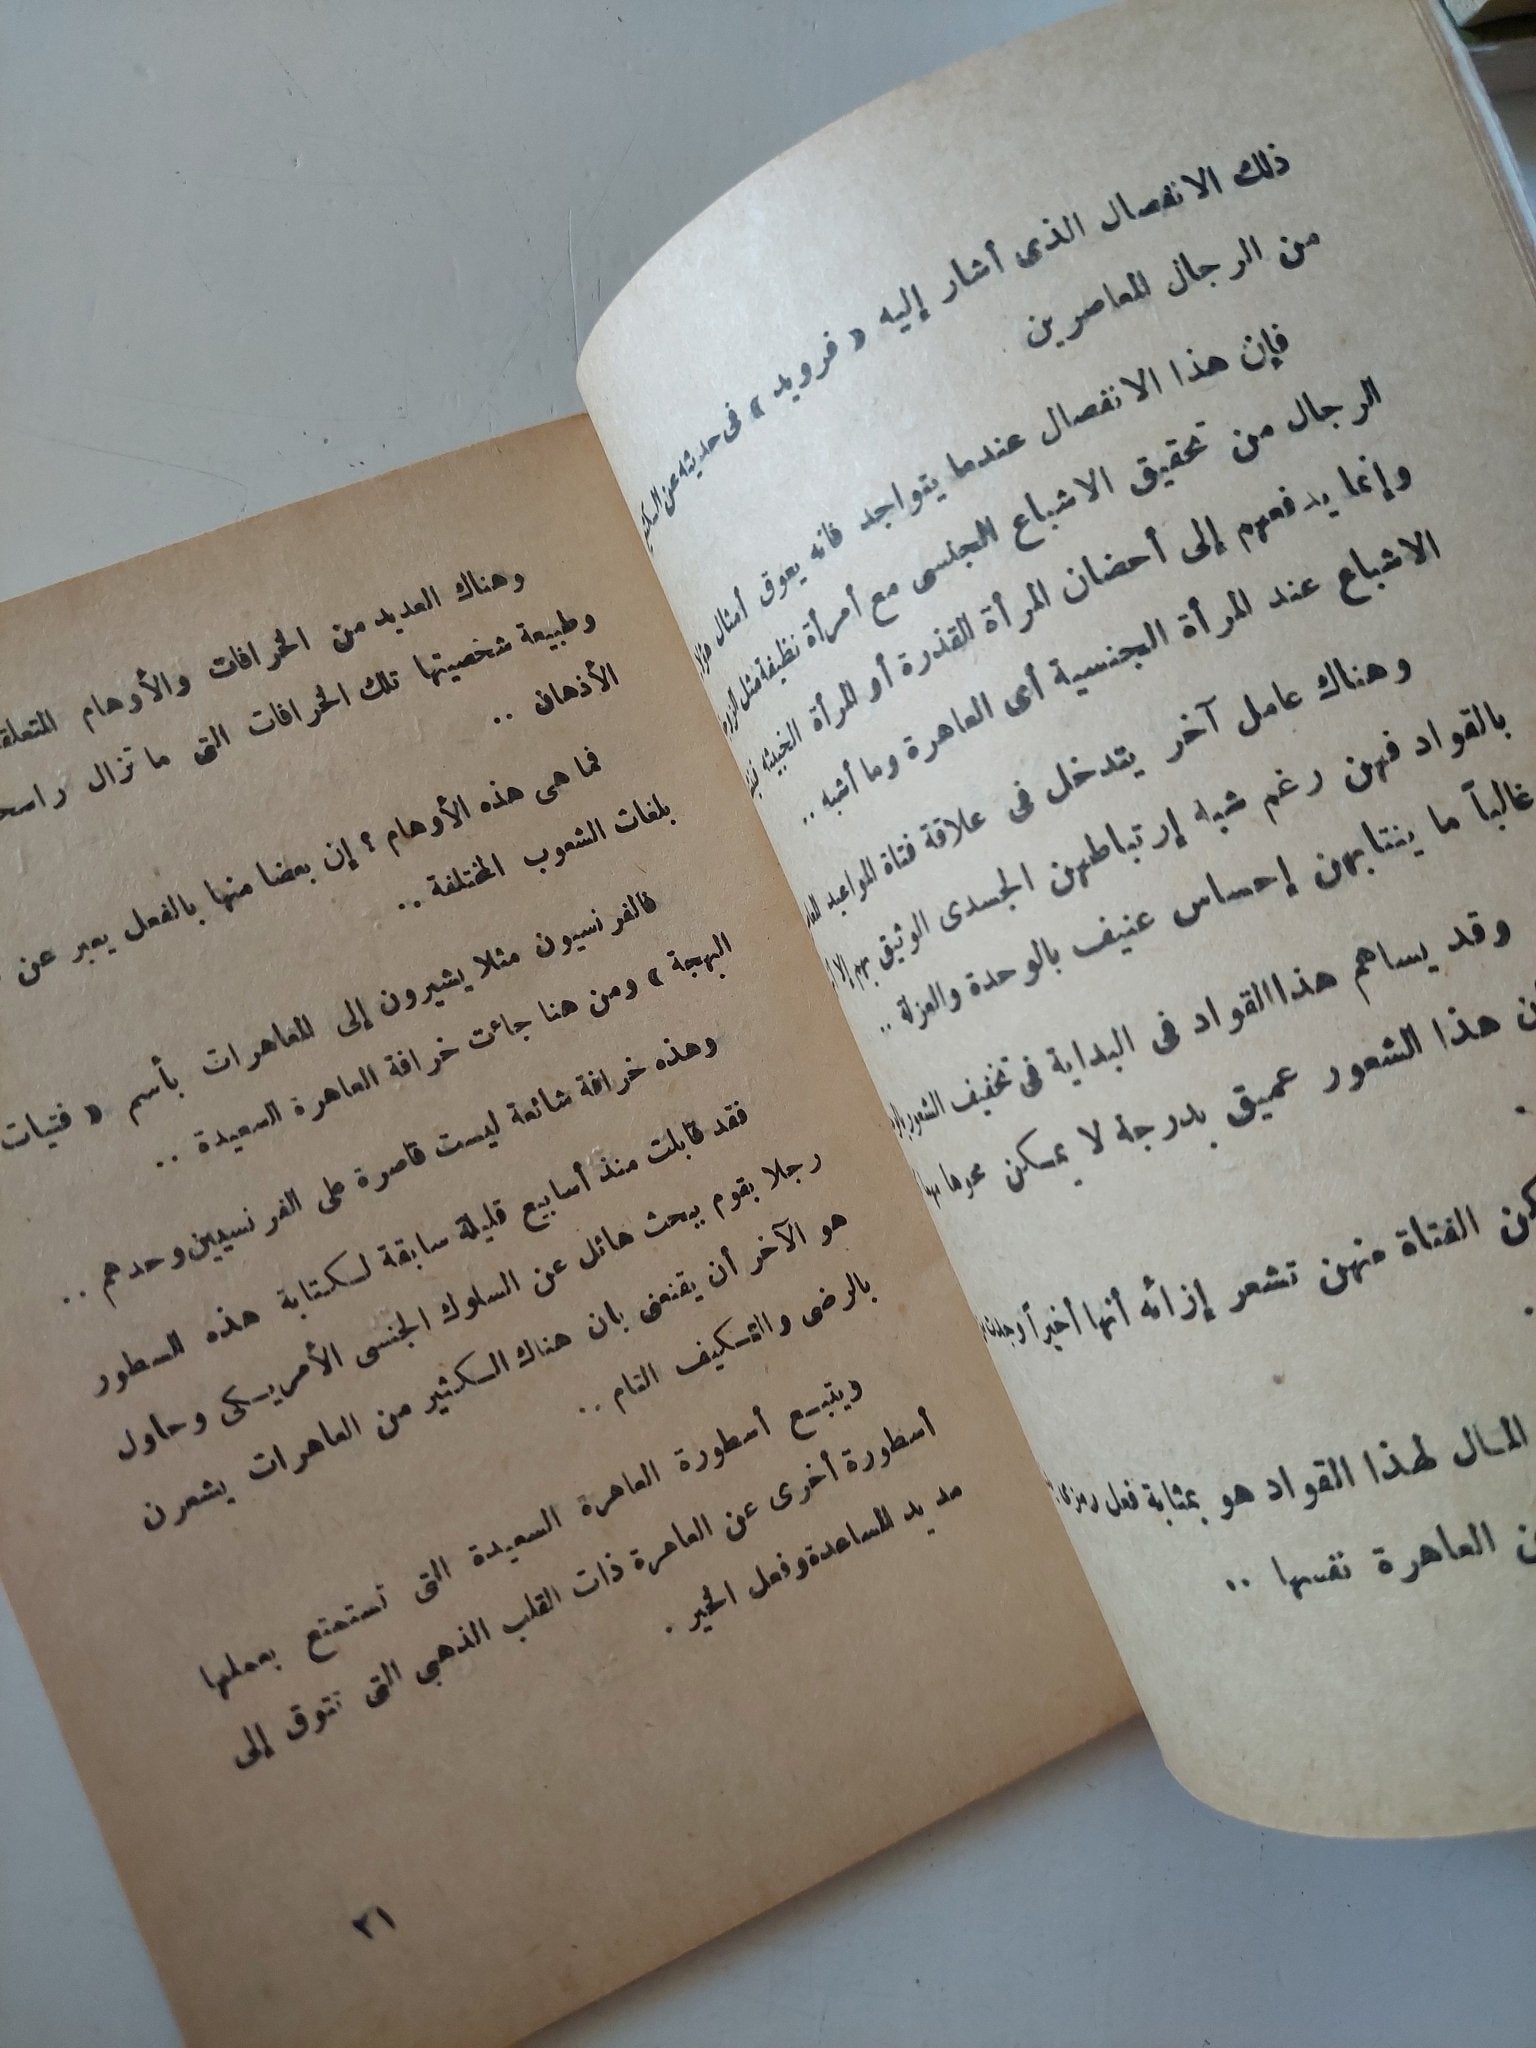 ذلك الانفصال الذى أشار إليه « فرويد » فى حديثه عن
من الرجال المعاصرين
فإن هذا الانفصال عندما يتواجد فانه يعوق أمثال
الرجال من تحقيق الاشباع الجنسى مع أمرأة نظيفة مثل
وإنما يدفعهم إلى أحضان المرأة القذرة أو المرأة الخبيثه
الاشباع عند المرأة الجنسية أى العاهرة وما أشبه ..
وهناك عامل آخر يتدخل فى علاقة فتاة المواعيد
بالقواد فهن رغم شبه إرتباطهن الجسدى الوثيق بهم إلا
غالباً ما ينتابهن إحساس عنيف بالوحدة والعزلة ..
وقد يساهم هذا القواد فى البداية فى تخفيف الشعور
هذا الشعور عميق بدرجة لا يمكن محوها
الفتاة منهن تشعر إزائه أنها أخيراً وجدت
المال لهذا القواد هو بمثابة فعل رمزى
العاهرة نفسها ..
وهناك العديد من الخرافات والأوهام
وطبيعة شخصيتها تلك الخرافات التى ما تزال
الأذهان ..
فما هى هذه الأوهام ؟ إن بعضا منها بالفعل يعبر عن
بلغات الشعوب المختلفة ..
فالفرنسيون مثلا يشيرون إلى العاهرات بأسم « فتيات
البهجة » ومن هنا جاءت خرافة العاهرة السعيدة ..
وهذه خرافة شائعة ليست قاصرة على الفرنسيين وحدهم ..
فقد قابلت منذ أسابيع قليلة سابقة لكتابة هذه السطور
رجلا يقوم ببحث هائل عن السلوك الجنسى الأمريكى وحاول
هو الآخر أن يقنعنى بان هناك الكثير من العاهرات يشعرن
بالرضى والتكيف التام ..
ويتبع أسطورة العاهرة السعيدة التى تستمتع بعملها
أسطورة أخرى عن العاهرة ذات القلب الذهبى التى تتوق إلى
مد يد المساعدة وفعل الخير .
٣١